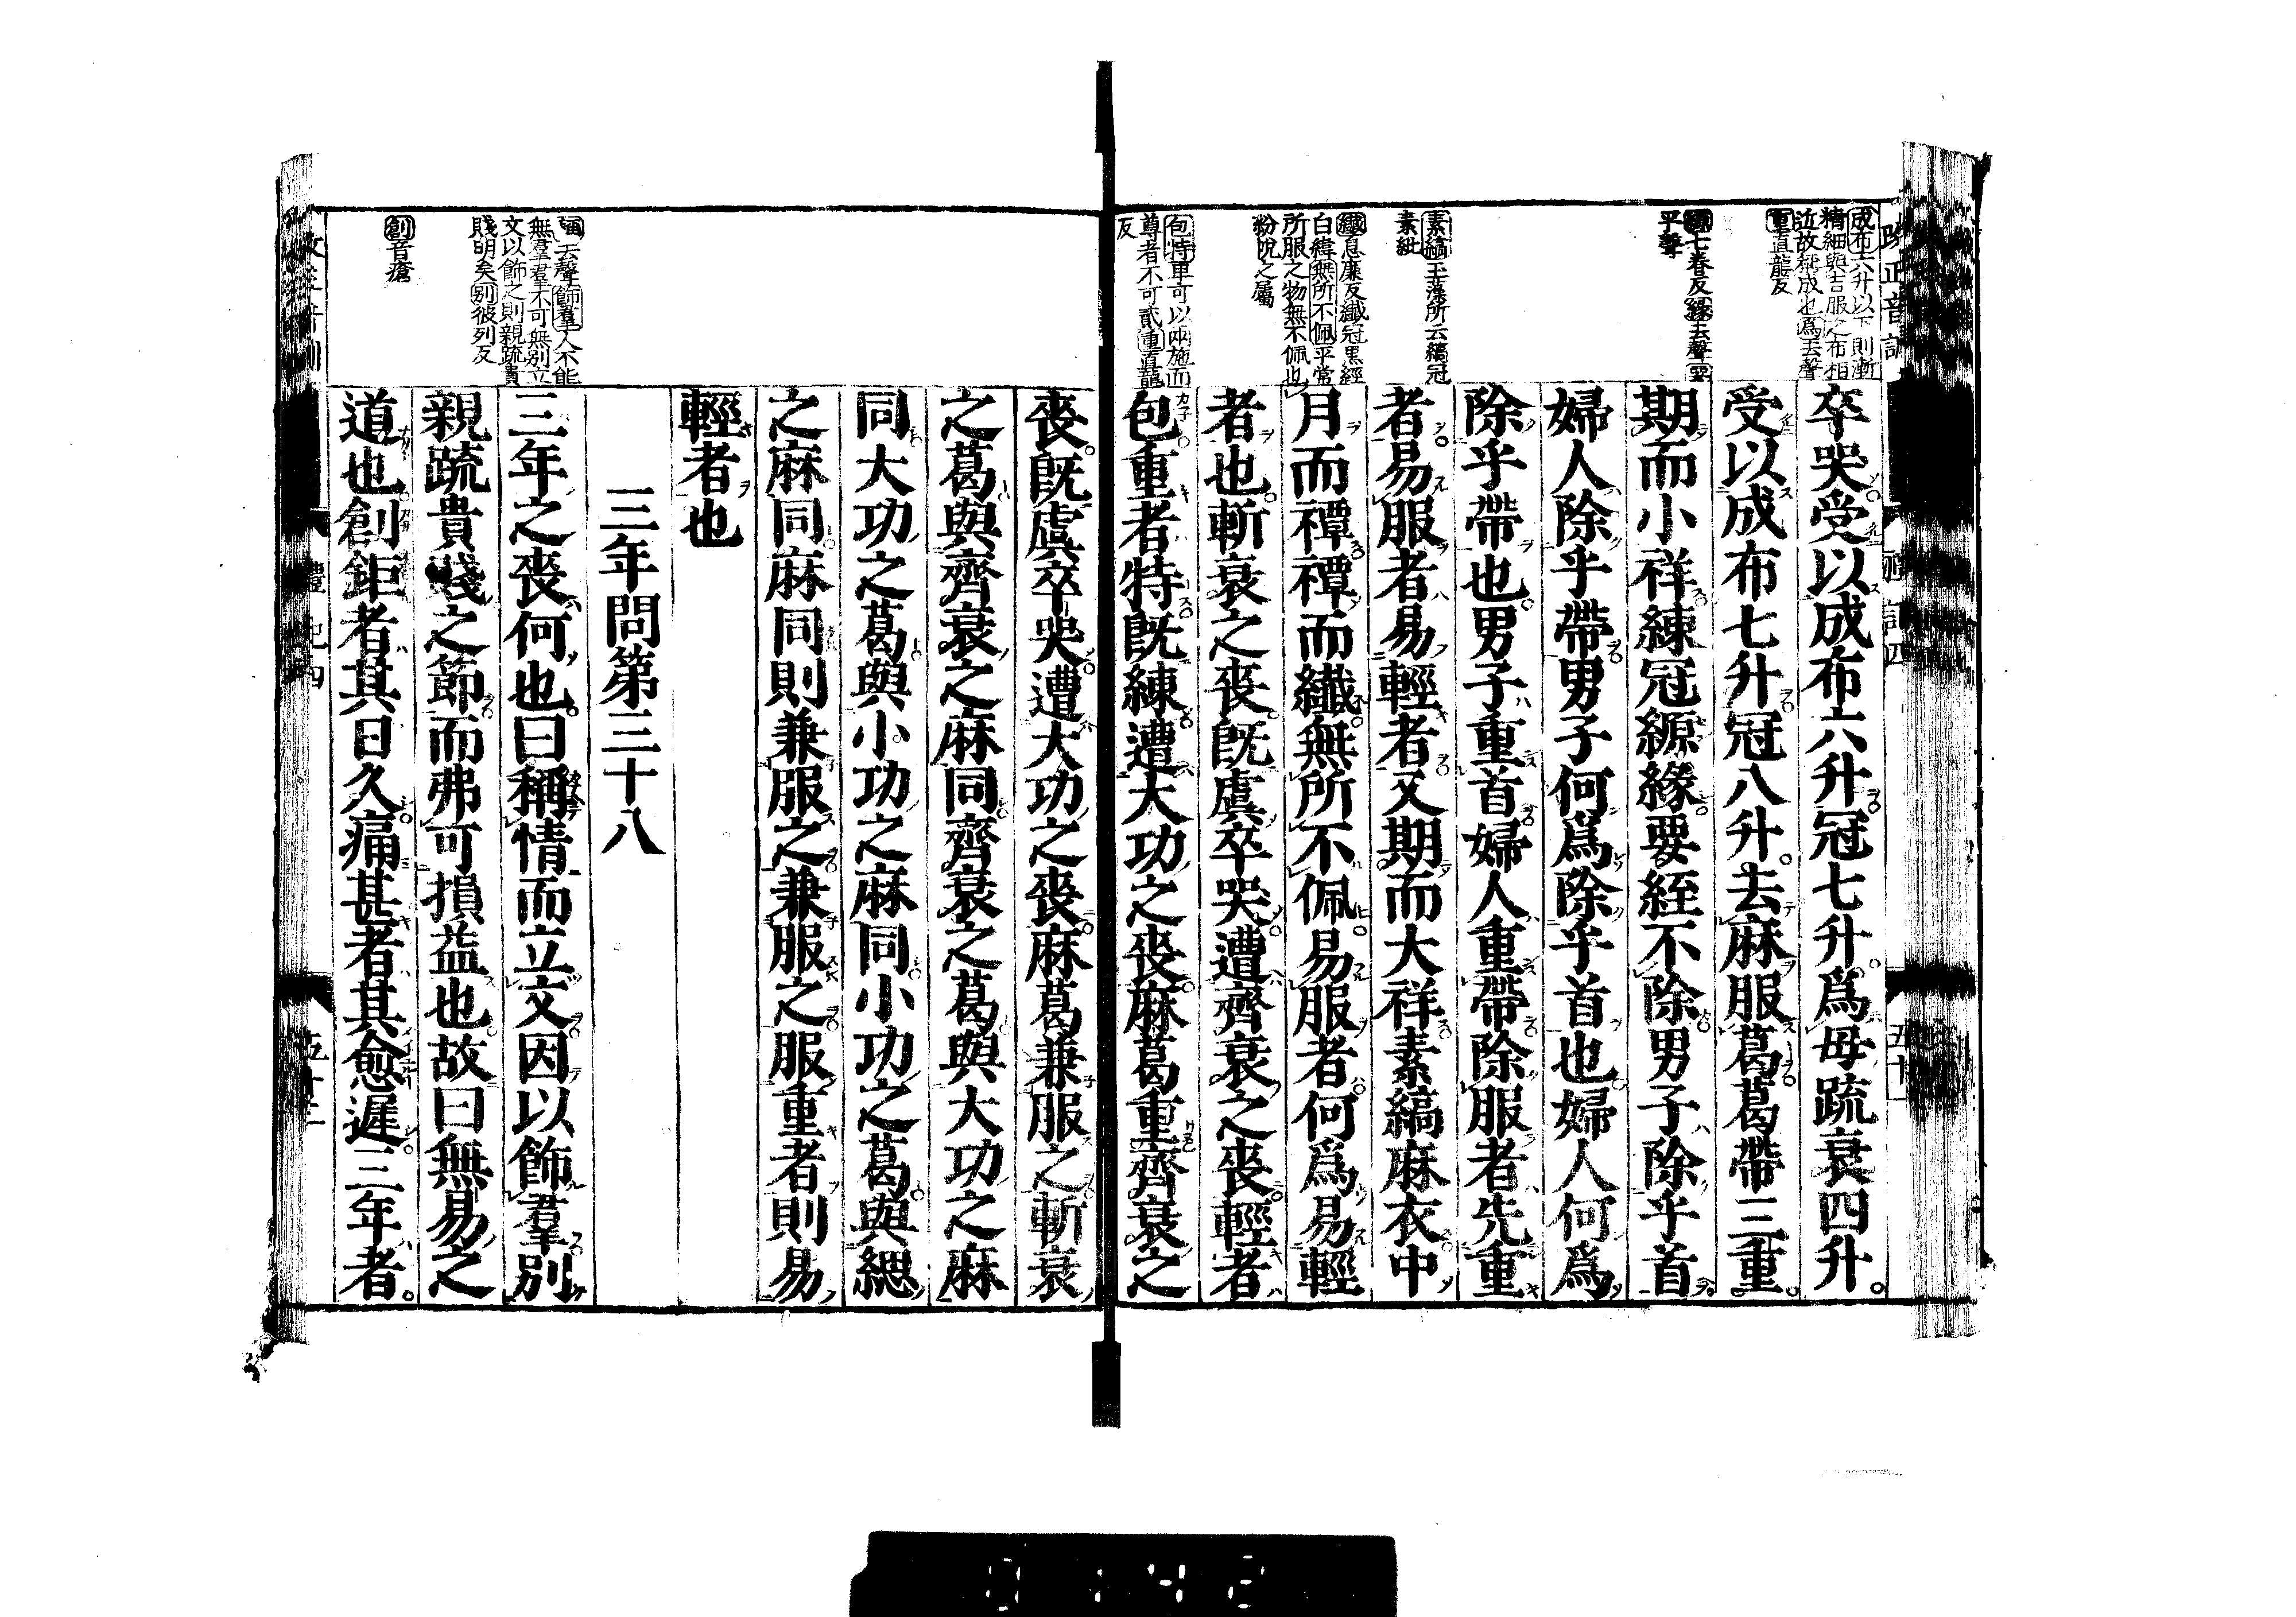 成布六升以下則漸
精細與吉服之布相
近故稱成也爲去聲
重直龍反
七眷反緣去聲要
平聲
素縞玉藻所云縞冠
素紕
纖息廉反纖冠黑經
白緯無所不佩平常
所服之物無不佩也
紛帨之屬
包特單可以兩施而
尊者不可貳重直龍
反
卒哭受以成布六升冠七升爲母疏衰四升
受以成布七升冠八升去麻服葛葛帶三重
期而小祥練冠縓緣要絰不除男子除乎首
婦人除乎帶男子何爲除乎首也婦人何爲
除乎帶也男子重首婦人重帶除服者先重
者易服者易輕者又期而大祥素縞麻衣中
月而禫禫而纖無所不佩易服者何爲易輕
者也斬衰之喪旣虞卒哭遭齊衰之喪輕者
包重者特旣練遭大功之喪麻葛重齊衰之
稱去聲飾羣人不能
無羣羣不可無別立
文以飾之則親疏貴
賤明矣別彼列反
創音瘡
喪旣虞卒哭遭大功之喪麻葛兼服之斬衰
之葛與齊衰之麻同齊衰之葛與大功之麻
同大功之葛與小功之麻同小功之葛與緦
之麻同麻同則兼服之兼服之服重者則易
輕者也
三年問第三十八
三年之喪何也曰稱情而立文因以飾羣別
親疏貴賤之節而弗可損益也故曰無易之
道也創鉅者其日久痛甚者其愈遲三年者
禮記四